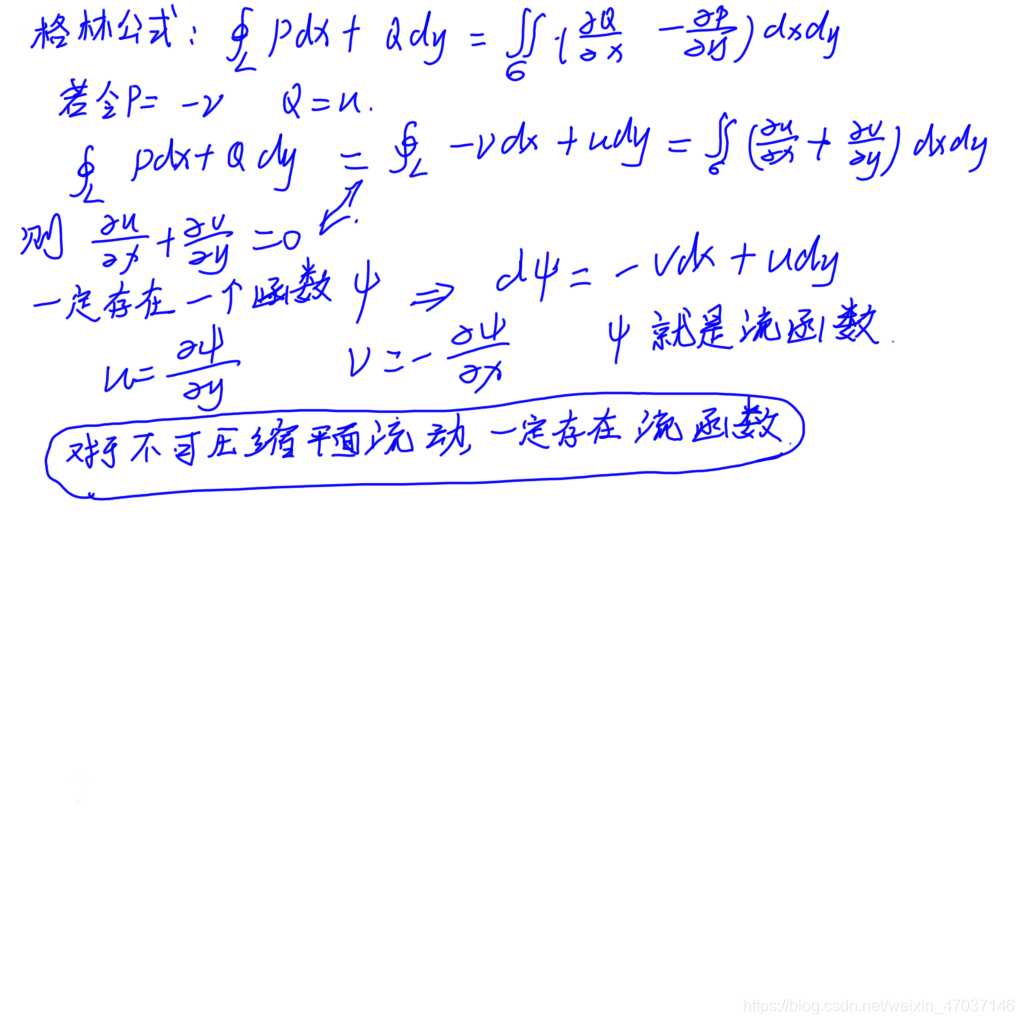 格林公式: ∮_L Pdx + Qdy = ∬_G (∂Q/∂x - ∂P/∂y) dxdy
若令P= -v Q=u.
∮_L Pdx + Qdy = ∮_L -vdx + udy = ∬_G (∂u/∂x + ∂v/∂y) dxdy
则 ∂u/∂x + ∂v/∂y = 0
一定存在一个函数 ψ ⇒ dψ = -vdx + udy
u = ∂ψ/∂y v = - ∂ψ/∂x ψ 就是流函数.
对于不可压缩平面流动,一定存在流函数.
https://blog.csdn.net/weixin_47037146